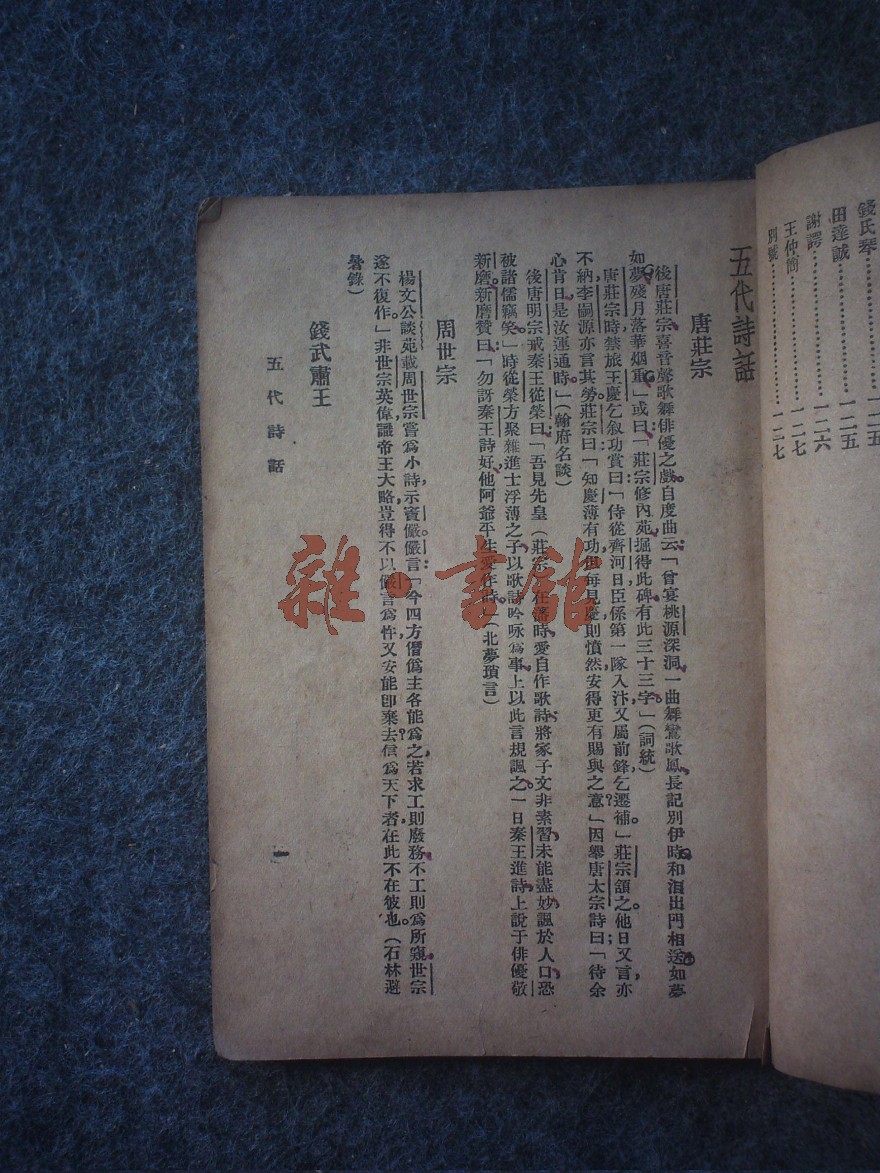 錢氏琴………………一二五
田達誠………………一二五
謝諤…………………一二六
王仲簡………………一二七
別號…………………一二七
五代詩話
唐莊宗
後唐莊宗喜音聲歌舞俳優之戲。自度曲云：「曾宴桃源深洞，一曲舞鸞歌鳳。長記別伊時，和淚出門相送。如夢
如夢，殘月落華烟重。」或曰：「莊宗修內苑，掘得此碑，有此三十三字。」（詞統）
唐莊宗時，禁旅王慶乞敘功賞曰：「侍從齊河日，臣係第一隊入汴，又屬前鋒，乞遷補。」莊宗頷之。他日又言，亦
不納。李嗣源亦言其勞。莊宗曰：「知慶薄有功，但每見慶則憤然，安得更有賜與之意？」因舉唐太宗詩曰：「待余
心肯日，是汝運通時。」（翰府名談）
後唐明宗戒秦王從榮曰：「吾見先皇（莊宗）在藩時，愛自作歌詩；將家子文非素習，未能盡妙，諷於人口，恐
被諸儒竊笑。」時從榮方聚雜進士浮薄之子，以歌詩吟咏為事，上以此言規諷之。一日秦王進詩，上說于俳優敬
新磨，新磨贊曰：「勿訝秦王詩好，他阿爺平生愛作時。」（北夢瑣言）
周世宗
楊文公談苑載周世宗嘗為小詩，示竇儼。儼言：「今四方僭偽主各能為之，若求工則廢務，不工則為所窺。」世宗
遂不復作。」非世宗英偉，識帝王大略，豈得不以儼言為忤，又安能即棄去？信為天下者，在此不在彼也。（石林避
暑錄）
錢武肅王
五代詩話
一
雜·書館